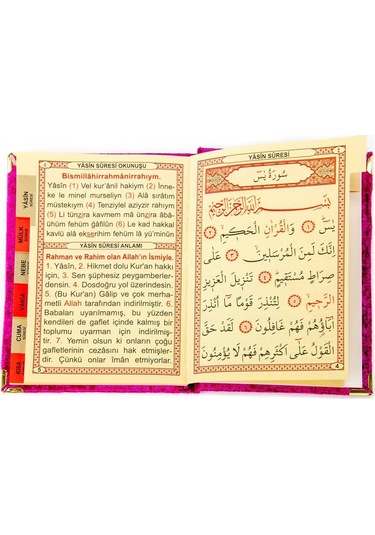 YÂSÎN SÛRESİ OKUNUŞU
Bismillâhirrahmânirrahıym.
Yâsîn (1) Vel kur'ânil hakiym (2) İnne-
ke le minel murseliyn (3) Alâ sırâtım
müstekıym (4) Tenziylel aziyzir rahıym
(5) Li tünzira kavmem mâ ünzira âbâ-
ühüm fehüm ğâfilûn (6) Le kad hakkal
kavlü alâ ekserihim fehüm lâ yü'minûn
YÂSÎN SÛRESİ ANLAMI
Rahman ve Rahim olan Allah'ın İsmiyle.
1. Yâsîn, 2. Hikmet dolu Kur'an hakkı
için, 3. Sen şüphesiz peygamberler-
densin. 4. Dosdoğru yol üzerindesin.
5. (Bu Kur'an) Gâlip ve çok merha-
metli Allah tarafından indirilmiştir. 6.
Babaları uyarılmamış, bu yüzden
kendileri de gaflet içinde kalmış bir
toplumu uyarman için indirilmiş-
tir. 7. Yemin olsun ki onların çoğu
gafletlerinin cezasını hak etmişler-
dir. Çünkü onlar îman etmiyorlar.
5
YÂSÎN
MÜLK
NEBE
VÂKIA
CUMA
KISA
YÂSÎN SÛRESİ
سُورَةُ يٰسٓ
بِسْمِ اللّٰهِ الرَّحْمٰنِ الرَّحِيمِ
يٰسٓ ﴿١﴾ وَالْقُرْاٰنِ الْحَكِيمِ ﴿٢﴾
اِنَّكَ لَمِنَ الْمُرْسَلِينَ ﴿٣﴾ عَلٰى
صِرَاطٍ مُسْتَقِيمٍ ﴿٤﴾ تَنْزِيلَ الْعَزِيزِ
الرَّحِيمِ ﴿٥﴾ لِتُنْذِرَ قَوْمًا مَٓا اُنْذِرَ
اٰبَٓاؤُ۬هُمْ فَهُمْ غَافِلُونَ ﴿٦﴾ لَقَدْ حَقَّ
الْقَوْلُ عَلٰٓى اَكْثَرِهِمْ فَهُمْ لَا يُؤْمِنُونَ
4